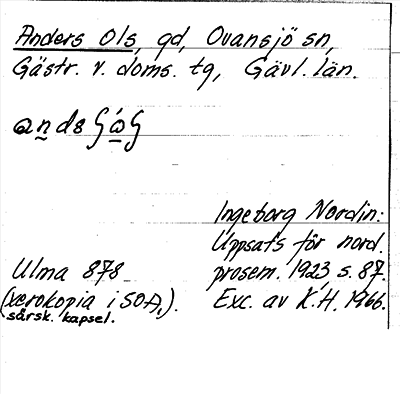 Anders Ols, gd, Ovansjö sn,
Gästr. v. doms. tg, Gävl. län.
Ingeborg Nordin:
Uppsats för nord.
prosem. 1923, s. 87.
Ulma 878
(xerokopia i SOA,).
särsk. kapsel.
Exc. av K.H. 1966.